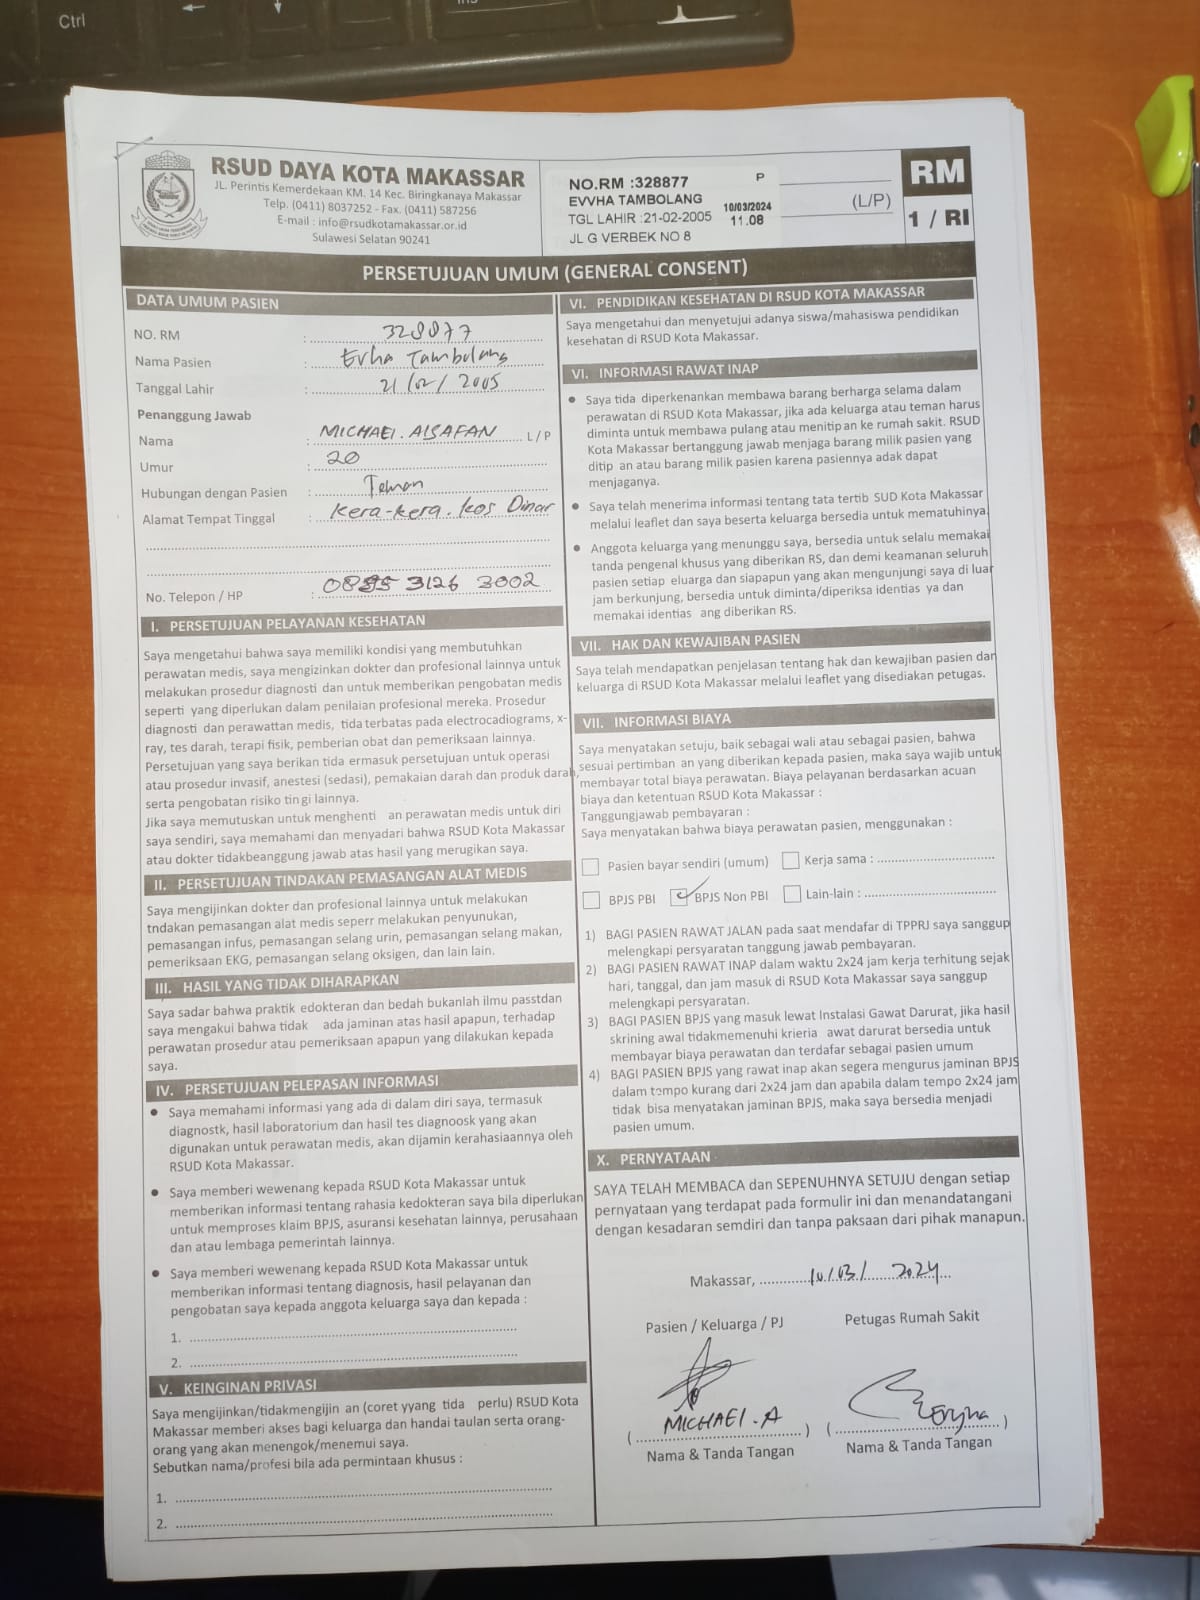 Ctrl
RSUD DAYA KOTA MAKASSAR
JL. Perintis Kemerdekaan KM. 14 Kec. Biringkanaya Makassar
Telp. (0411) 8037252 - Fax. (0411) 587256
E-mail : info@rsudkotamakassar.or.id
Sulawesi Selatan 90241
NO.RM :328877 P
EVVHA TAMBOLANG 10/03/2024
TGL LAHIR :21-02-2005 11.08
JL G VERBEK NO 8
(L/P)
RM
1 / RI
PERSETUJUAN UMUM (GENERAL CONSENT)
DATA UMUM PASIEN
NO. RM : 328877
Nama Pasien : Evha Tambolang
Tanggal Lahir : 21/02/2005
Penanggung Jawab
Nama : MICHAEL. ALSAFAN L / P
Umur : 20
Hubungan dengan Pasien : Teman
Alamat Tempat Tinggal : kera-kera. kos Dinar
No. Telepon / HP : 0895 3126 3002
I. PERSETUJUAN PELAYANAN KESEHATAN
Saya mengetahui bahwa saya memiliki kondisi yang membutuhkan
perawatan medis, saya mengizinkan dokter dan profesional lainnya untuk
melakukan prosedur diagnosti dan untuk memberikan pengobatan medis
seperti yang diperlukan dalam penilaian profesional mereka. Prosedur
diagnosti dan perawattan medis, tida terbatas pada electrocadiograms, x-
ray, tes darah, terapi fisik, pemberian obat dan pemeriksaan lainnya.
Persetujuan yang saya berikan tida ermasuk persetujuan untuk operasi
atau prosedur invasif, anestesi (sedasi), pemakaian darah dan produk darah,
serta pengobatan risiko tin gi lainnya.
Jika saya memutuskan untuk menghenti an perawatan medis untuk diri
saya sendiri, saya memahami dan menyadari bahwa RSUD Kota Makassar
atau dokter tidakbeanggung jawab atas hasil yang merugikan saya.
II. PERSETUJUAN TINDAKAN PEMASANGAN ALAT MEDIS
Saya mengijinkan dokter dan profesional lainnya untuk melakukan
tndakan pemasangan alat medis seperr melakukan penyunukan,
pemasangan infus, pemasangan selang urin, pemasangan selang makan,
pemeriksaan EKG, pemasangan selang oksigen, dan lain lain.
III. HASIL YANG TIDAK DIHARAPKAN
Saya sadar bahwa praktik edokteran dan bedah bukanlah ilmu passtdan
saya mengakui bahwa tidak ada jaminan atas hasil apapun, terhadap
perawatan prosedur atau pemeriksaan apapun yang dilakukan kepada
saya.
IV. PERSETUJUAN PELEPASAN INFORMASI
• Saya memahami informasi yang ada di dalam diri saya, termasuk
diagnostk, hasil laboratorium dan hasil tes diagnoosk yang akan
digunakan untuk perawatan medis, akan dijamin kerahasiaannya oleh
RSUD Kota Makassar.
• Saya memberi wewenang kepada RSUD Kota Makassar untuk
memberikan informasi tentang rahasia kedokteran saya bila diperlukan
untuk memproses klaim BPJS, asuransi kesehatan lainnya, perusahaan
dan atau lembaga pemerintah lainnya.
• Saya memberi wewenang kepada RSUD Kota Makassar untuk
memberikan informasi tentang diagnosis, hasil pelayanan dan
pengobatan saya kepada anggota keluarga saya dan kepada :
1.
2.
V. KEINGINAN PRIVASI
Saya mengijinkan/tidakmengijin an (coret yyang tida perlu) RSUD Kota
Makassar memberi akses bagi keluarga dan handai taulan serta orang-
orang yang akan menengok/menemui saya.
Sebutkan nama/profesi bila ada permintaan khusus :
1.
2.
VI. PENDIDIKAN KESEHATAN DI RSUD KOTA MAKASSAR
Saya mengetahui dan menyetujui adanya siswa/mahasiswa pendidikan
kesehatan di RSUD Kota Makassar.
VI. INFORMASI RAWAT INAP
• Saya tida diperkenankan membawa barang berharga selama dalam
perawatan di RSUD Kota Makassar, jika ada keluarga atau teman harus
diminta untuk membawa pulang atau menitip an ke rumah sakit. RSUD
Kota Makassar bertanggung jawab menjaga barang milik pasien yang
ditip an atau barang milik pasien karena pasiennya adak dapat
menjaganya.
• Saya telah menerima informasi tentang tata tertib SUD Kota Makassar
melalui leaflet dan saya beserta keluarga bersedia untuk mematuhinya.
• Anggota keluarga yang menunggu saya, bersedia untuk selalu memakai
tanda pengenal khusus yang diberikan RS, dan demi keamanan seluruh
pasien setiap eluarga dan siapapun yang akan mengunjungi saya di luar
jam berkunjung, bersedia untuk diminta/diperiksa identias ya dan
memakai identias ang diberikan RS.
VII. HAK DAN KEWAJIBAN PASIEN
Saya telah mendapatkan penjelasan tentang hak dan kewajiban pasien dan
keluarga di RSUD Kota Makassar melalui leaflet yang disediakan petugas.
VII. INFORMASI BIAYA
Saya menyatakan setuju, baik sebagai wali atau sebagai pasien, bahwa
sesuai pertimban an yang diberikan kepada pasien, maka saya wajib untuk
membayar total biaya perawatan. Biaya pelayanan berdasarkan acuan
biaya dan ketentuan RSUD Kota Makassar :
Tanggungjawab pembayaran :
Saya menyatakan bahwa biaya perawatan pasien, menggunakan :
Pasien bayar sendiri (umum) Kerja sama :
BPJS PBI BPJS Non PBI Lain-lain :
1) BAGI PASIEN RAWAT JALAN pada saat mendafar di TPPRJ saya sanggup
melengkapi persyaratan tanggung jawab pembayaran.
2) BAGI PASIEN RAWAT INAP dalam waktu 2x24 jam kerja terhitung sejak
hari, tanggal, dan jam masuk di RSUD Kota Makassar saya sanggup
melengkapi persyaratan.
3) BAGI PASIEN BPJS yang masuk lewat Instalasi Gawat Darurat, jika hasil
skrining awal tidakmemenuhi krieria awat darurat bersedia untuk
membayar biaya perawatan dan terdafar sebagai pasien umum
4) BAGI PASIEN BPJS yang rawat inap akan segera mengurus jaminan BPJS
dalam tempo kurang dari 2x24 jam dan apabila dalam tempo 2x24 jam
tidak bisa menyatakan jaminan BPJS, maka saya bersedia menjadi
pasien umum.
X. PERNYATAAN
SAYA TELAH MEMBACA dan SEPENUHNYA SETUJU dengan setiap
pernyataan yang terdapat pada formulir ini dan menandatangani
dengan kesadaran semdiri dan tanpa paksaan dari pihak manapun.
Makassar, 10/03/ 2024
Pasien / Keluarga / PJ Petugas Rumah Sakit
( MICHAEL . A ) ( )
Nama & Tanda Tangan Nama & Tanda Tangan